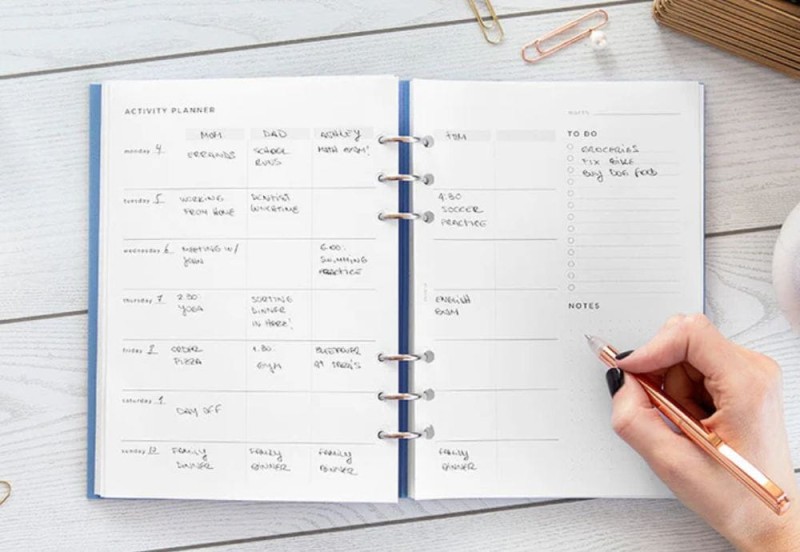 ACTIVITY PLANNER
NOTES
MOM
DAD
ASHLEY
TOM
TO DO
monday 4
ERRANDS
SCHOOL
RUNS
MATH EXAM!
GROCERIES
FIX BIKE
BUY DOG FOOD
tuesday 5
WORKING
FROM HOME
DENTIST
4:30
SOCCER
PRACTICE
wednesday 6
MEETING W/
JOAN
6:00:
SWIMMING
PRACTICE
thursday 7
2:30
YOGA
SORTING
DINNER
ENGLISH
EXAM
NOTES
friday 8
ORDER
PIZZA
GYM
SLEEPOVER
saturday 9
DAY OFF
sunday 10
FAMILY
DINNER
FAMILY
DINNER
FAMILY
DINNER
FAMILY
DINNER